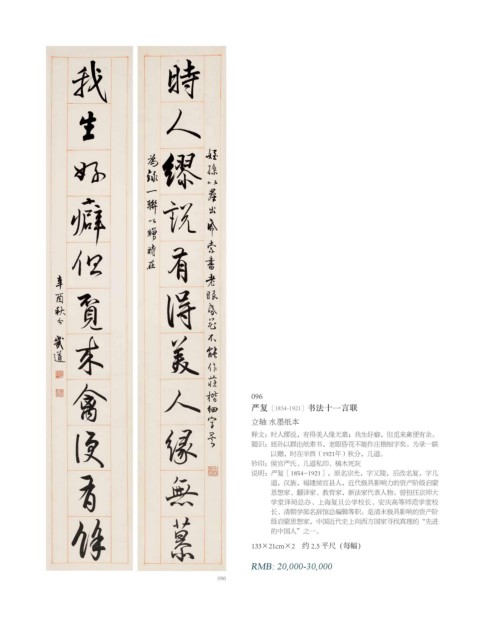 時人繆說有得美人緣無慕
姪孫以羣出紙索書老眼昏花不能作莊楷細字矣
為錄一聯以贈時在
我生好癖但覓來禽便有餘
辛酉秋分 幾道
096
096
严复［1854-1921］ 书法十一言联
立轴 水墨纸本
释文：时人缪说，有得美人缘无慕；我生好癖，但觅来禽便有余。
题识：姪孙以群出纸索书，老眼昏花不能作庄楷细字矣。为录一联
以赠，时在辛酉（1921年）秋分，几道。
钤印：侯官严氏、几道私印、槁木死灰
说明：严复［1854-1921］，原名宗光，字又陵，后改名复，字几
道，汉族，福建侯官县人，近代极具影响力的资产阶级启蒙
思想家，翻译家、教育家，新法家代表人物。曾担任京师大
学堂译局总办、上海复旦公学校长、安庆高等师范学堂校
长、清朝学部名辞馆总编辑等职。是清末极具影响的资产阶
级启蒙思想家，中国近代史上向西方国家寻找真理的“先进
的中国人”之一。
135×21cm×2 约 2.5 平尺（每幅）
RMB: 20,000-30,000